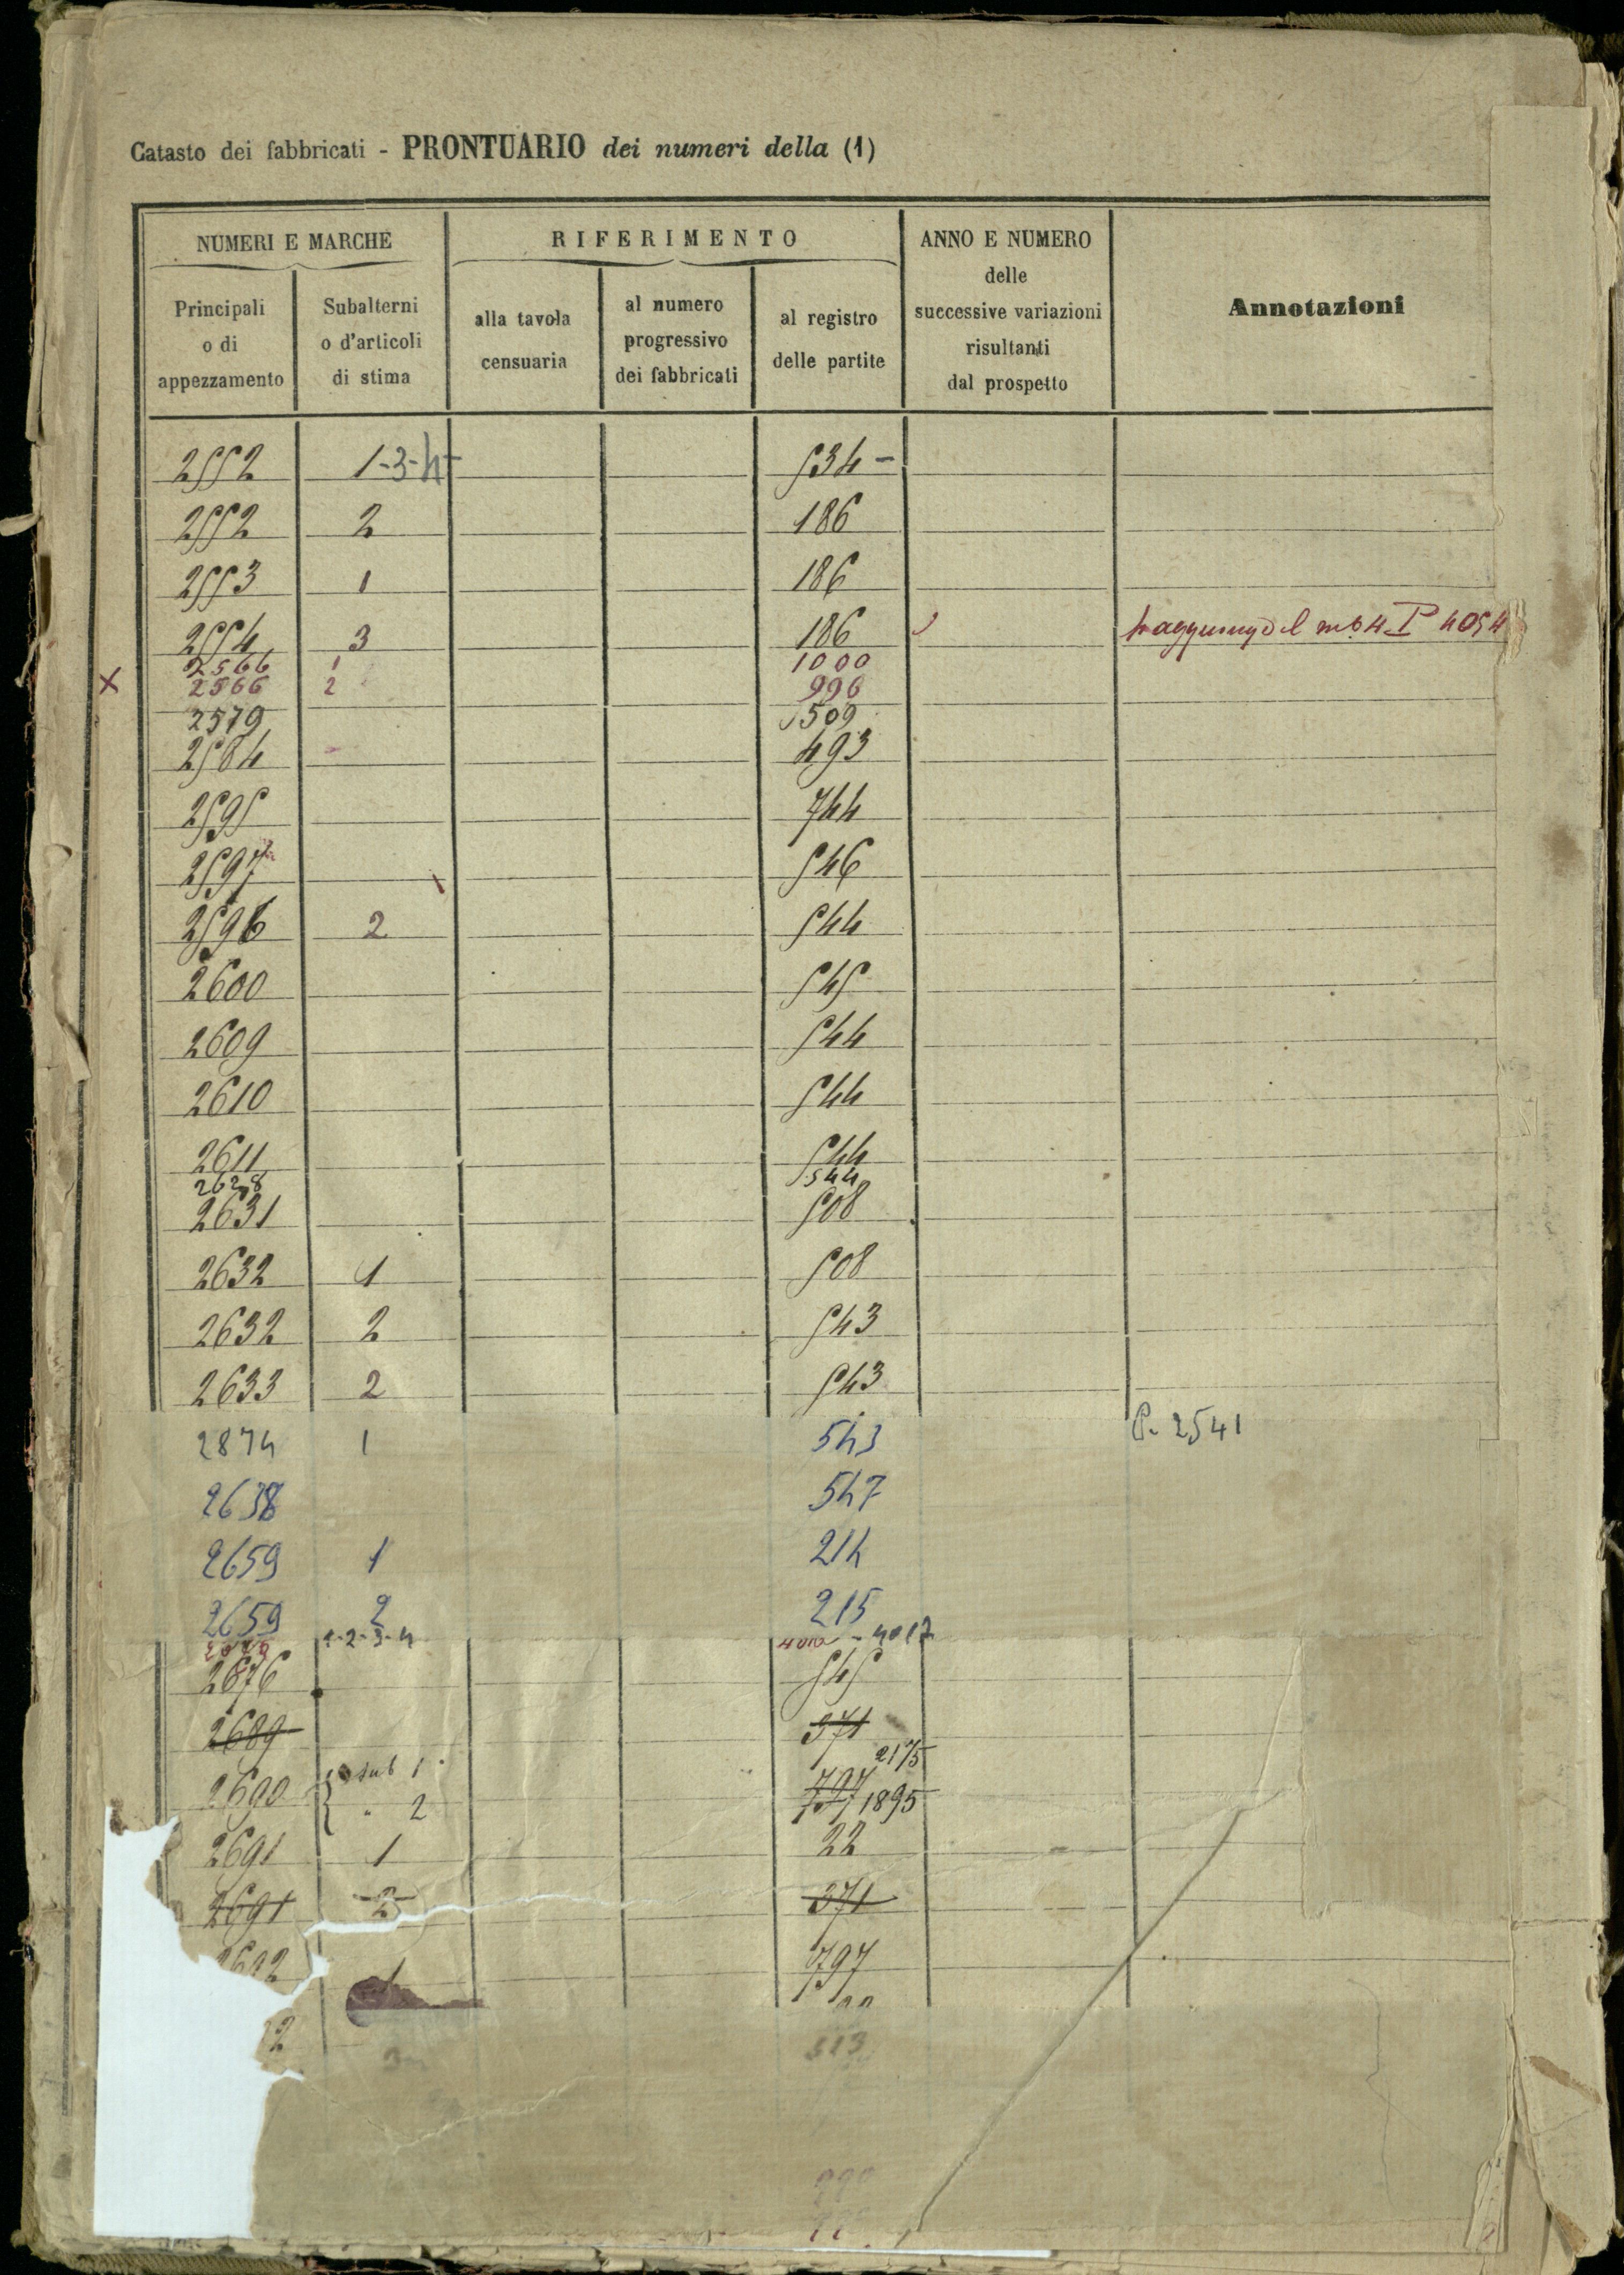 Catasto dei fabbricati - PRONTUARIO dei numeri della (1)
NUMERI E MARCHE
RIFERIMENTO
ANNO E NUMERO
delle
successive variazioni
risultanti
dal prospetto
Annotazioni
Principali
o di
appezzamento
Subalterni
o d'articoli
di stima
alla tavola
censuaria
al numero
progressivo
dei fabbricati
al registro
delle partite
2552 1-3-4 534 -
2552 2 186
2553 1 186
2554 3 186 4054
2566 1 1000
x 2566 2 996
2579 509
2584 493
2595 744
2597 546
2596 2 544
2600 545
2609 544
2610 544
2611 544
2628 544
2631 508
2632 1 508
2632 2 543
2633 2 543
2874 1 543 P. 2541
2638 547
2659 1 214
2659 2 215
1-2-3-4 - 4017
2676 545
2689 371
2175
2690 sub 1 797
" 2 797 1895
2691 1 22
2691 2 371
2692 1 797
2 3 513